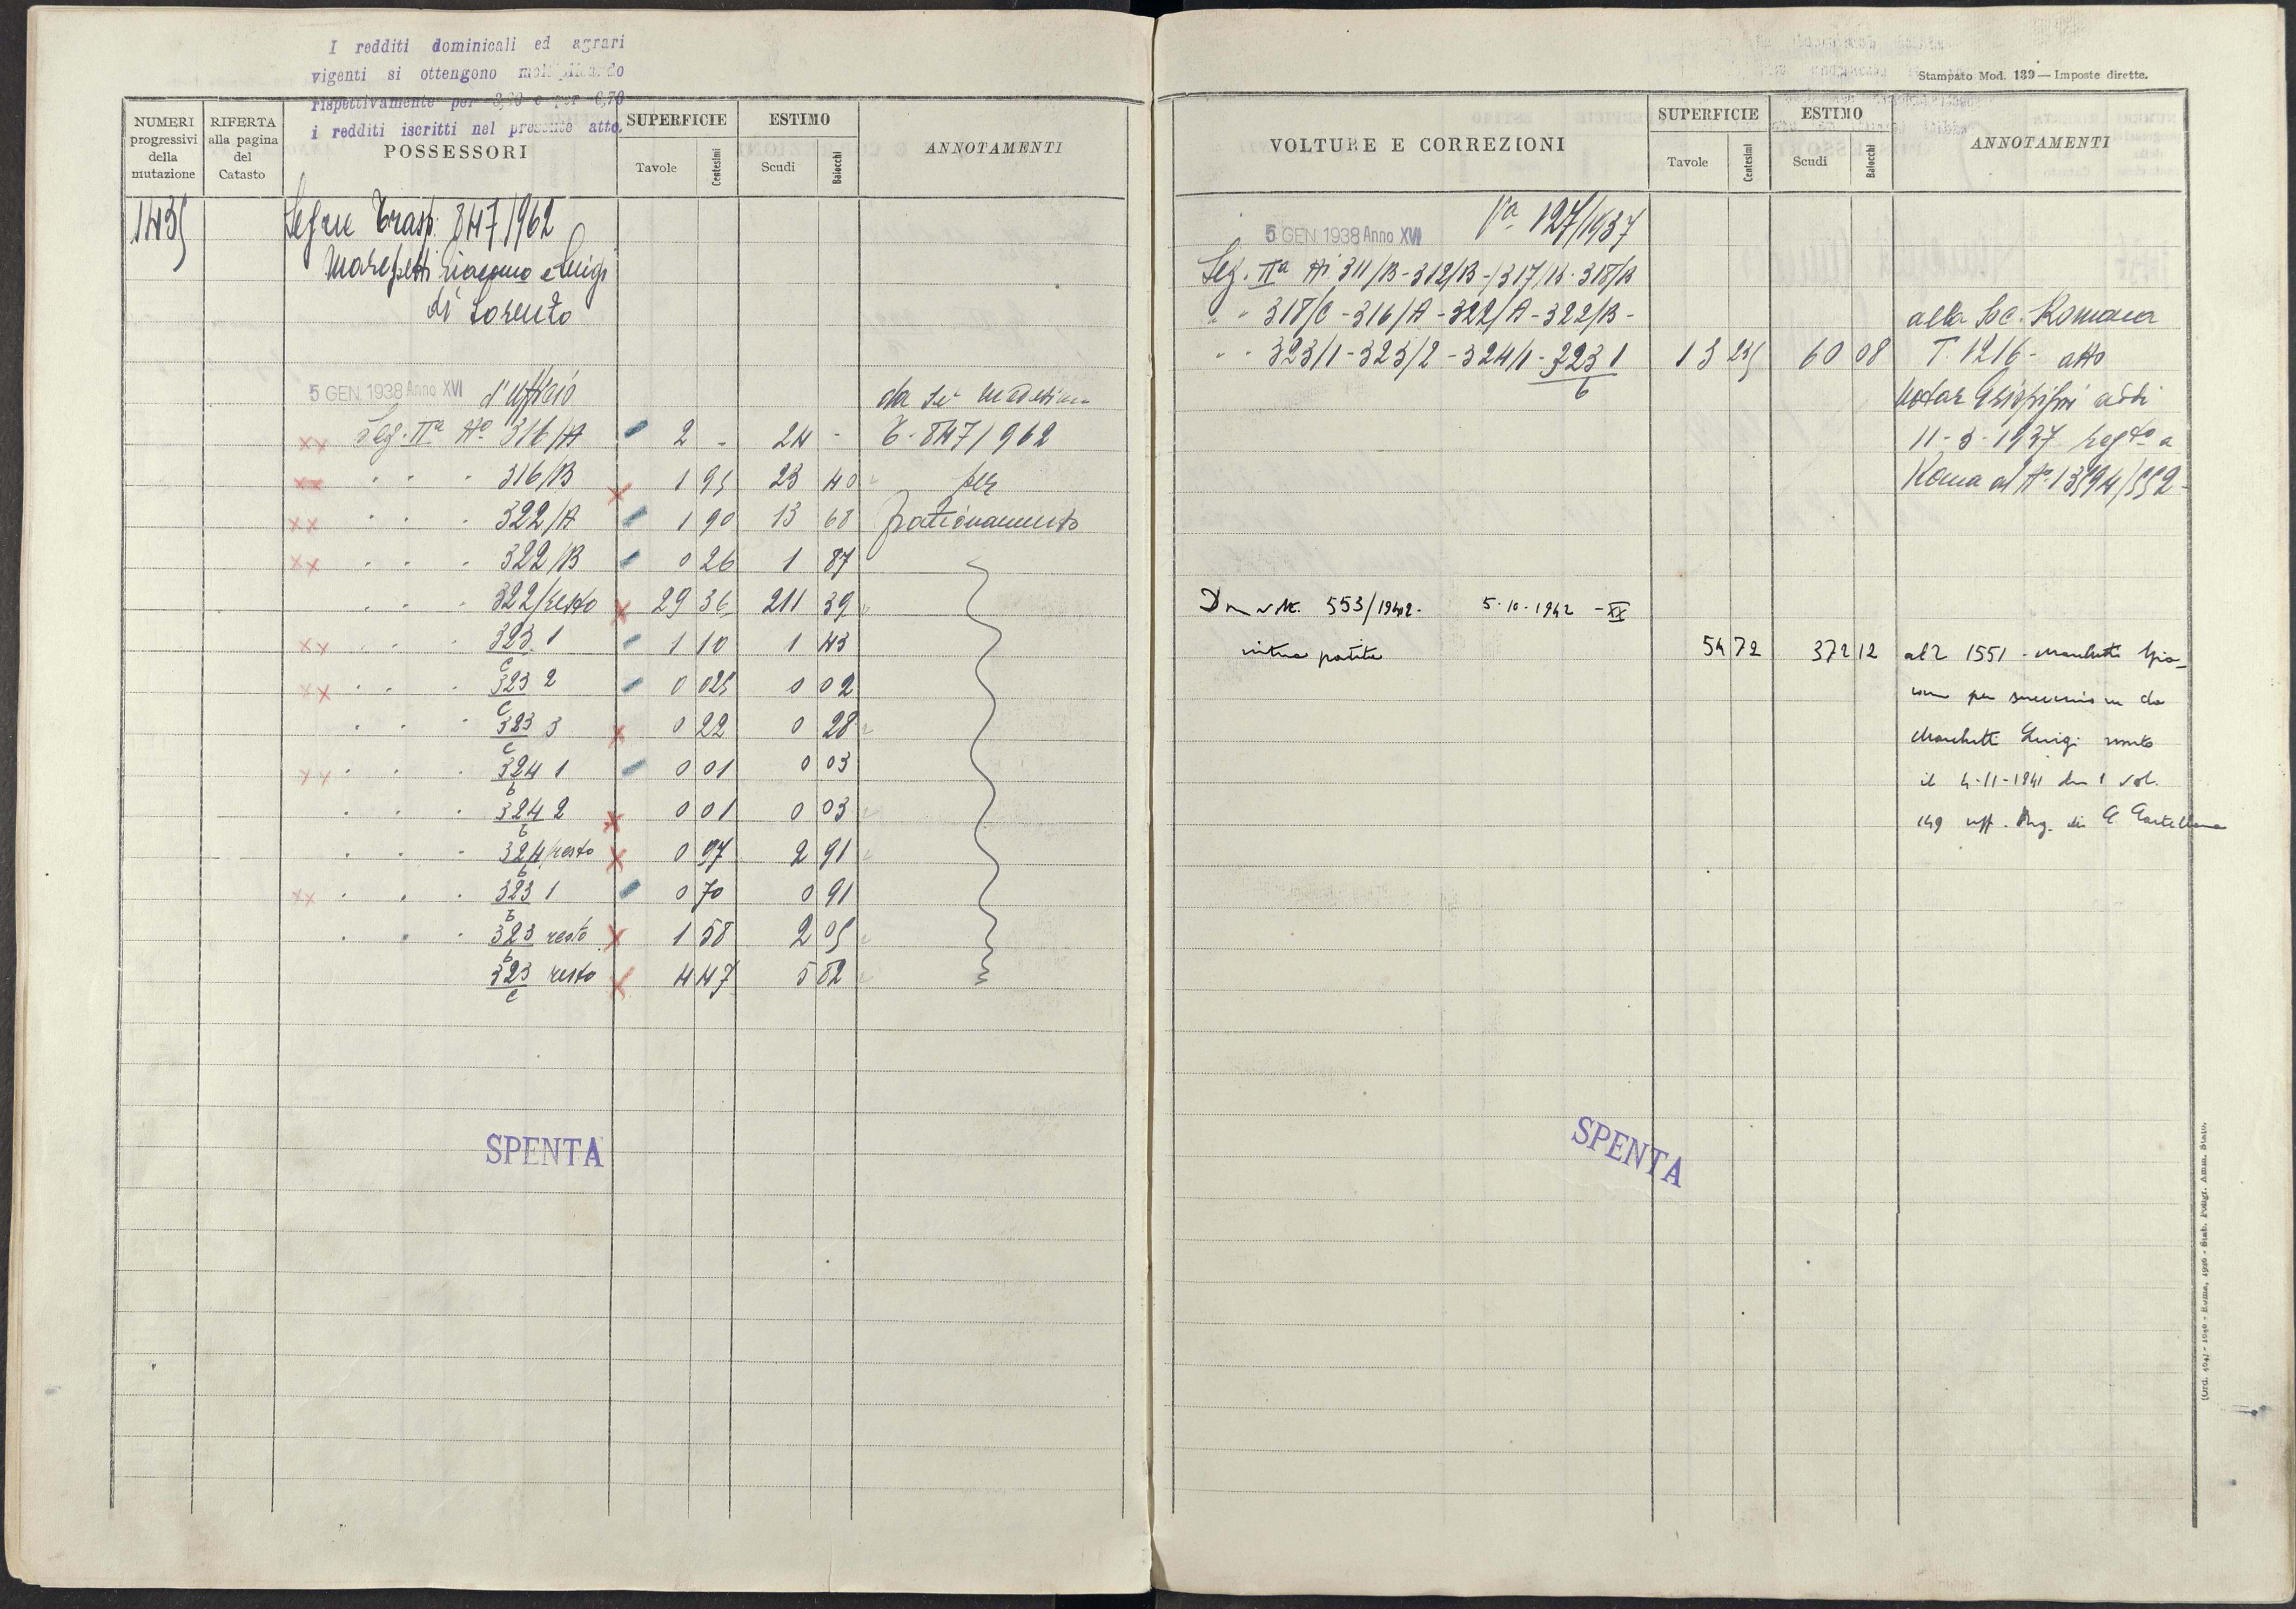 I redditi dominicali ed agrari
vigenti si ottengono moltiplicando
rispettivamente per e per
i redditi iscritti nel presente atto.
NUMERI progressivi della mutazione
RIFERTA alla pagina del Catasto
POSSESSORI
SUPERFICIE
Tavole Centesimi
ESTIMO
Scudi Baiocchi
ANNOTAMENTI
1435 Segue Trasp. 847/962
Giacomo e Luigi
di Lorenzo
5 GEN. 1938 Anno XVI d'ufficio da sé medesimi
xx Sez. IIa No 316/A 2 - 24 - T. 847/962
xx " " " 316/B x 1 95 23 40 per
xx " " " 322/A 1 90 13 68 frazionamento
xx " " " 322/B 0 26 1 87
" " " 322/resto x 29 36 211 39
xx " " " 323/c 1 1 10 1 43
xx " " " 323/c 2 0 025 0 02
" " " 323/c 3 x 0 22 0 28
xx " " " 324/b 1 0 01 0 03
" " " 324/b 2 x 0 01 0 03
" " " 324/b resto x 0 97 2 91
xx " " " 323/b 1 0 70 0 91
" " " 323/b resto x 1 58 2 05
323/c resto x 4 47 5 82
SPENTA
Stampato Mod. 139 — Imposte dirette.
VOLTURE E CORREZIONI
SUPERFICIE
Tavole Centesimi
ESTIMO
Scudi Baiocchi
ANNOTAMENTI
5 GEN. 1938 Anno XVI Va 127/1937
Sez. IIa Ni 311/B - 312/B - 317/B - 318/B
" " 318/C - 316/A - 322/A - 322/B - alla Soc. Romana
" " 323/1 - 323/2 - 324/1 - 323/b 1 13 235 60 08 T. 1216 - atto
Notar
11-3-1937 regto a
Roma al No 13594/552
553/1942. 5-10-1942 - XX
intera partita 54 72 372 12 al 1551 - Marchetti Gia-
como per successione da
Marchetti Luigi morto
il 4-11-1941 den 1 vol.
149 uff. Reg. di C Castellana
SPENTA